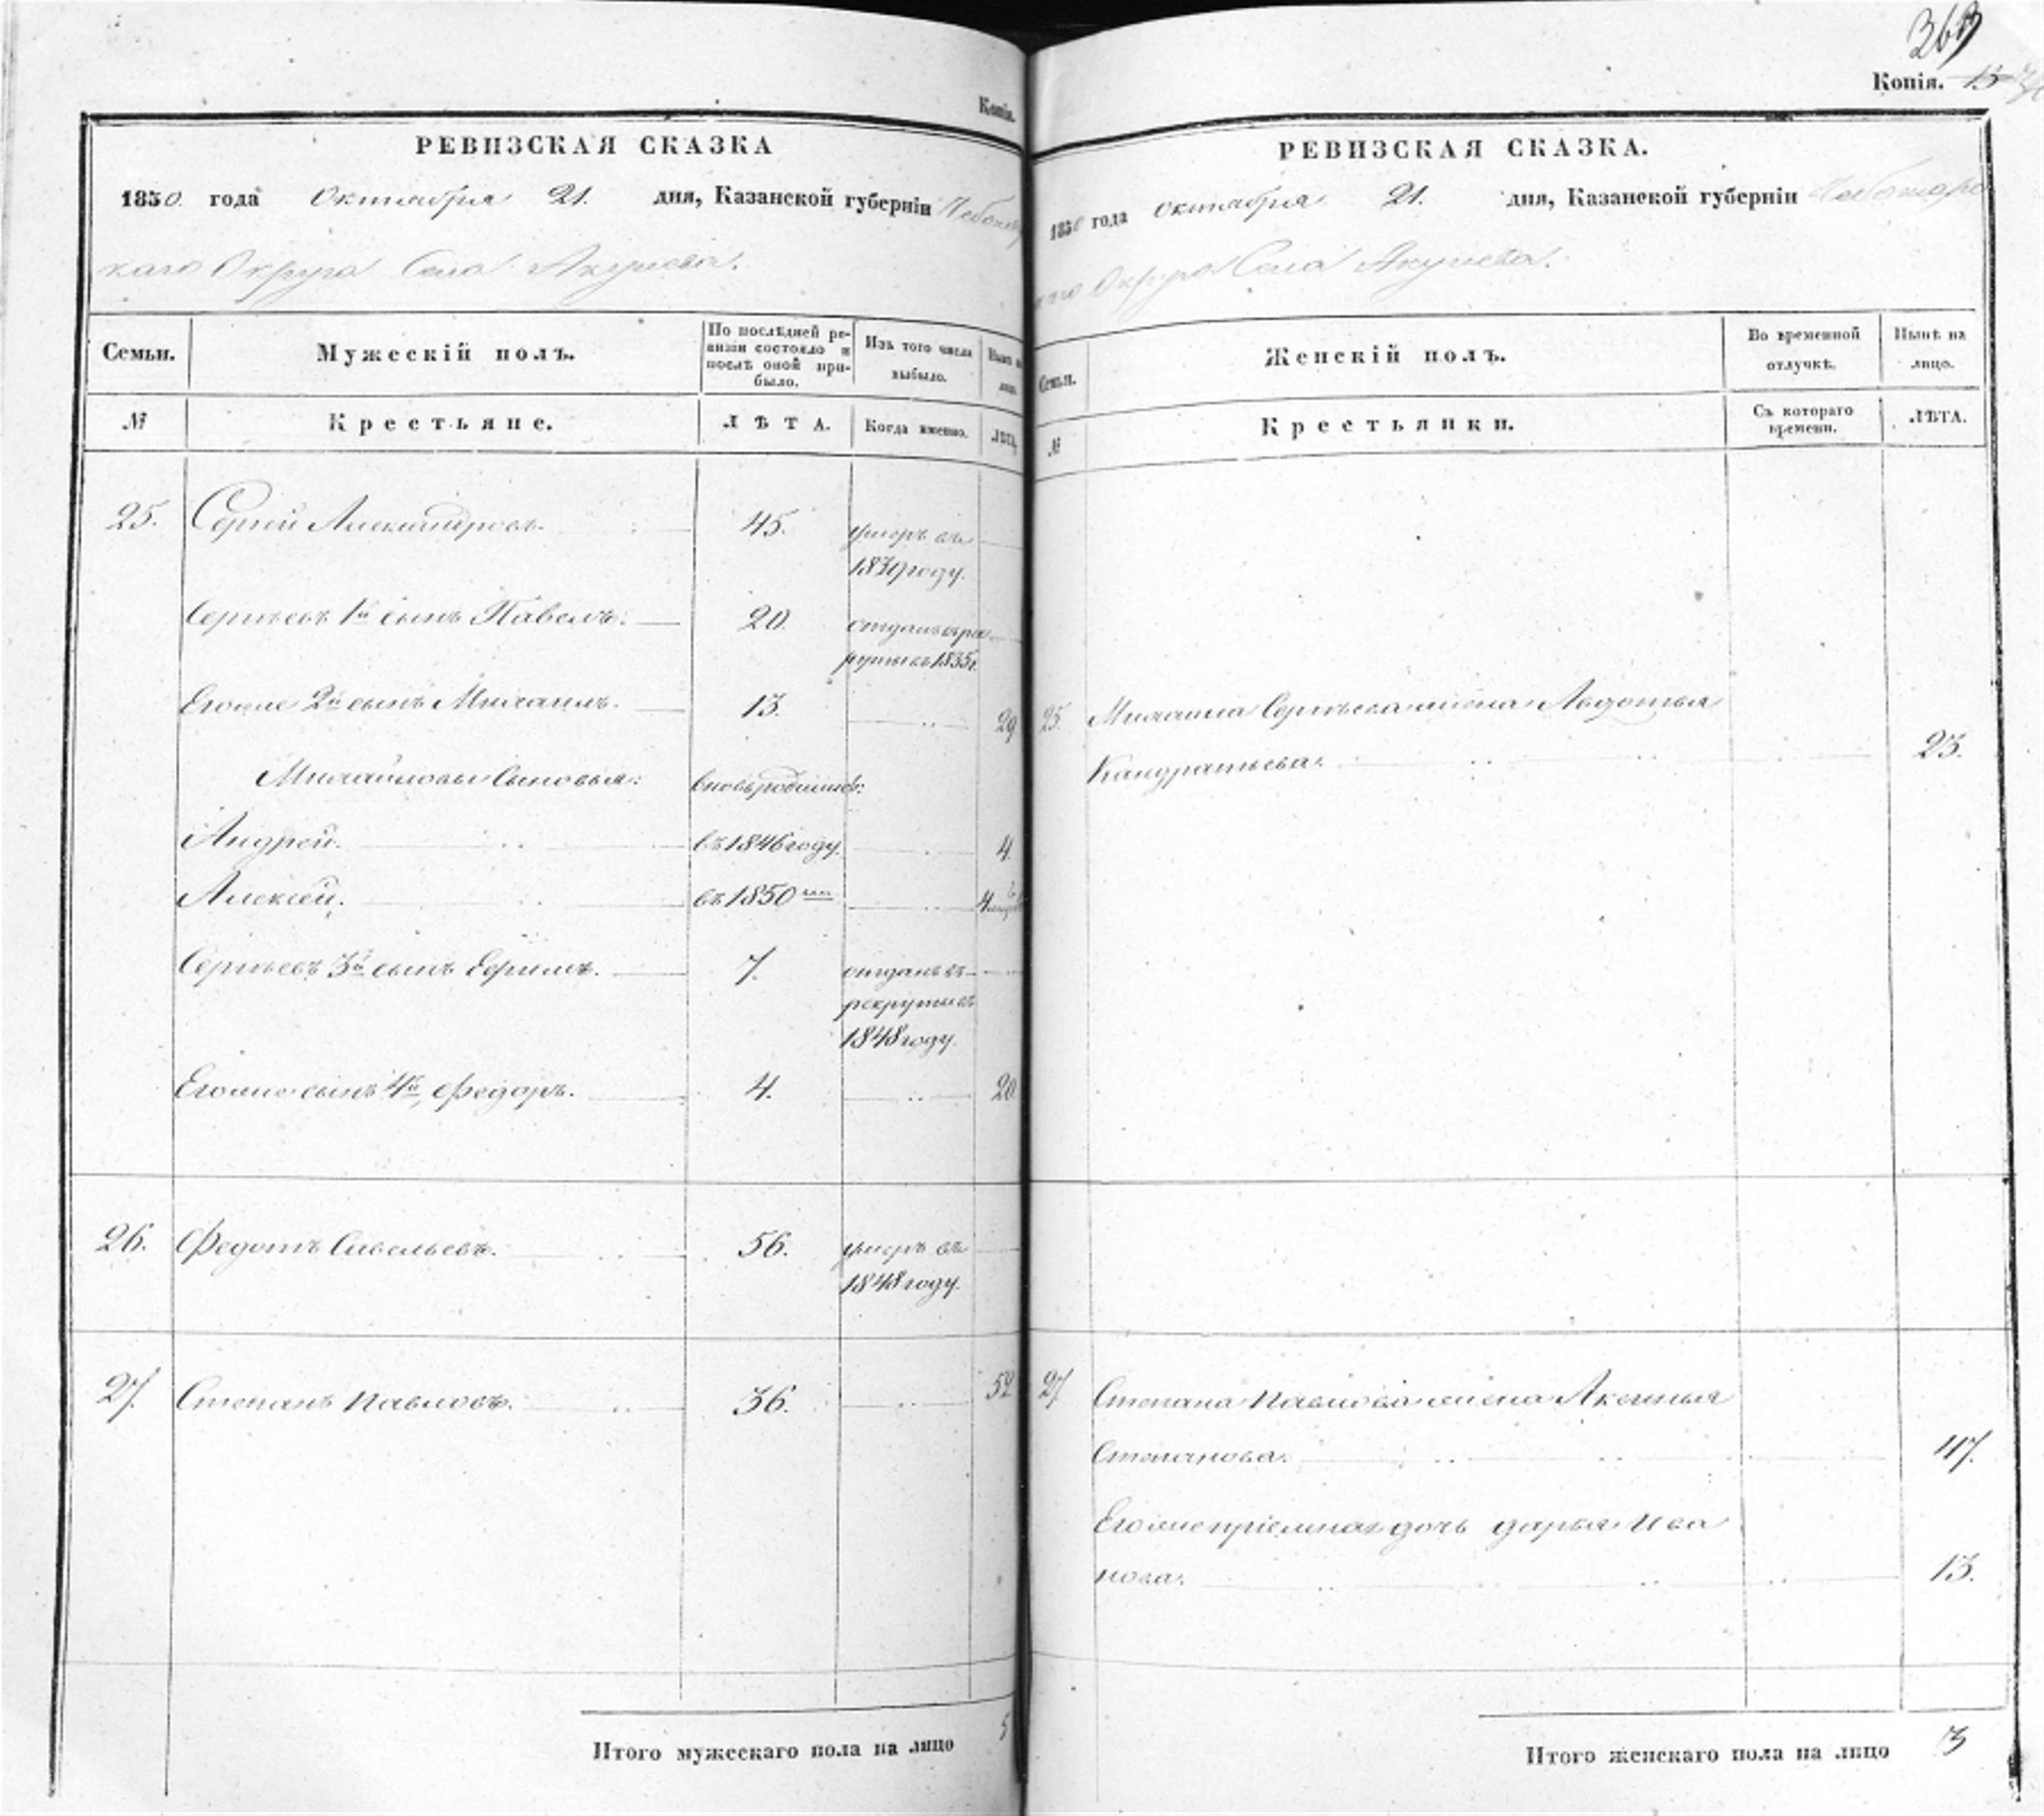 Копія.
РЕВИЗСКАЯ СКАЗКА
1850 года Октября 21. дня, Казанской губерніи Чебоксар
каго Округа Села Акулева.
Семьи.
Мужескій полъ.
По послѣдней ре-
визіи состояло и
послѣ оной при-
было.
Изъ того числа
выбыло.
Нынѣ на
лицо.
№
Крестьяне.
ЛѢТА.
Когда именно.
ЛѢТА.
25. Сергѣй Александровъ. 45. умеръ въ
1839 году.
Сергѣевъ 1й сынъ Павелъ. 20. отданъ въ рек
руты въ 1835 г.
Егоже 2й сынъ Михаилъ. 13. 29
Михайловы сыновья: вновь родились:
Андрей. въ 1846 году. 4.
Алексей. въ 1850 4
Сергѣевъ 3й сынъ Ефимъ. 7. отданъ въ
рекруты въ
1848 году.
Егоже сынъ 4й Федоръ. 4. 20
26. Федотъ Савельевъ. 56. умеръ въ
1848 году.
27. Степанъ Павловъ. 36. 52
Итого мужескаго пола на лицо 5
363
Копія. 15
РЕВИЗСКАЯ СКАЗКА.
1850 года Октября 21. дня, Казанской губерніи Чебоксарс
каго Округа Села Акулева.
Семьи.
Женскій полъ.
Во временной
отлучкѣ.
Нынѣ на
лицо.
№
Крестьянки.
Съ котораго
времени.
ЛѢТА.
25. Михаила Сергѣева жена Авдотья
Кандратьева. 23.
27 Степана Павлова жена Акулина
Степанова. 47.
Егоже пріемная дочь Дарья Ива
нова. 13.
Итого женскаго пола на лицо 3